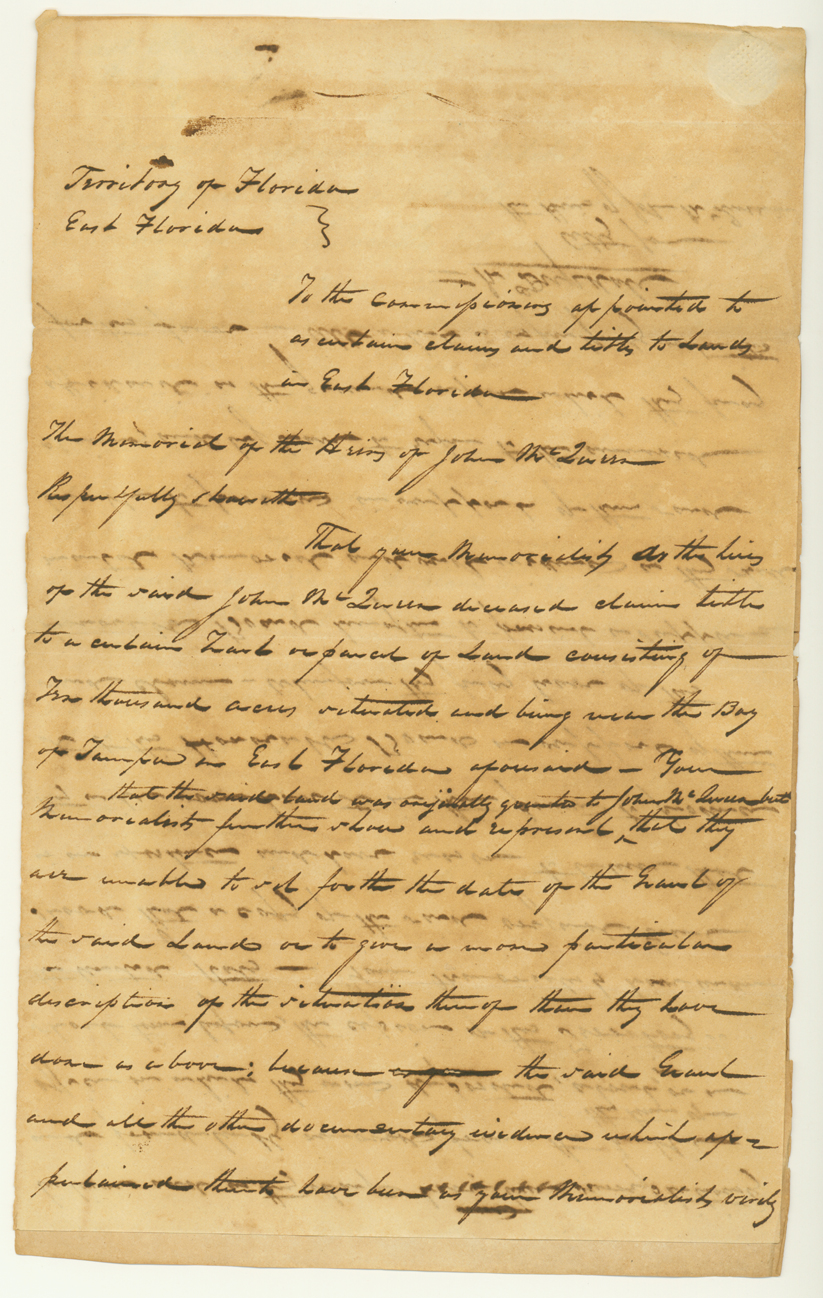 Territory of Florida
East Florida }
To the Commissioners appointed to
ascertain claims and titles to Lands
in East Florida
The Memorial of the Heirs of John McQueen
Respectfully sheweth
That your Memorialists as the heirs
of the said John McQueen deceased claim title
to a certain Tract or parcel of Land consisting of
Ten thousand acres situated and being near the Bay
of Tampa in East Florida aforesaid – Your
that the said land was originally granted to John McQueen but
Memorialists further show and represent, ^ that they
are unable to set forth the date of the Grant of
the said Land or to give a more particular
description of the situation thereof than they have
done as above; because the said Grant
and all the other documentary evidence which ap=
pertained thereto have been as your Memorialists verily